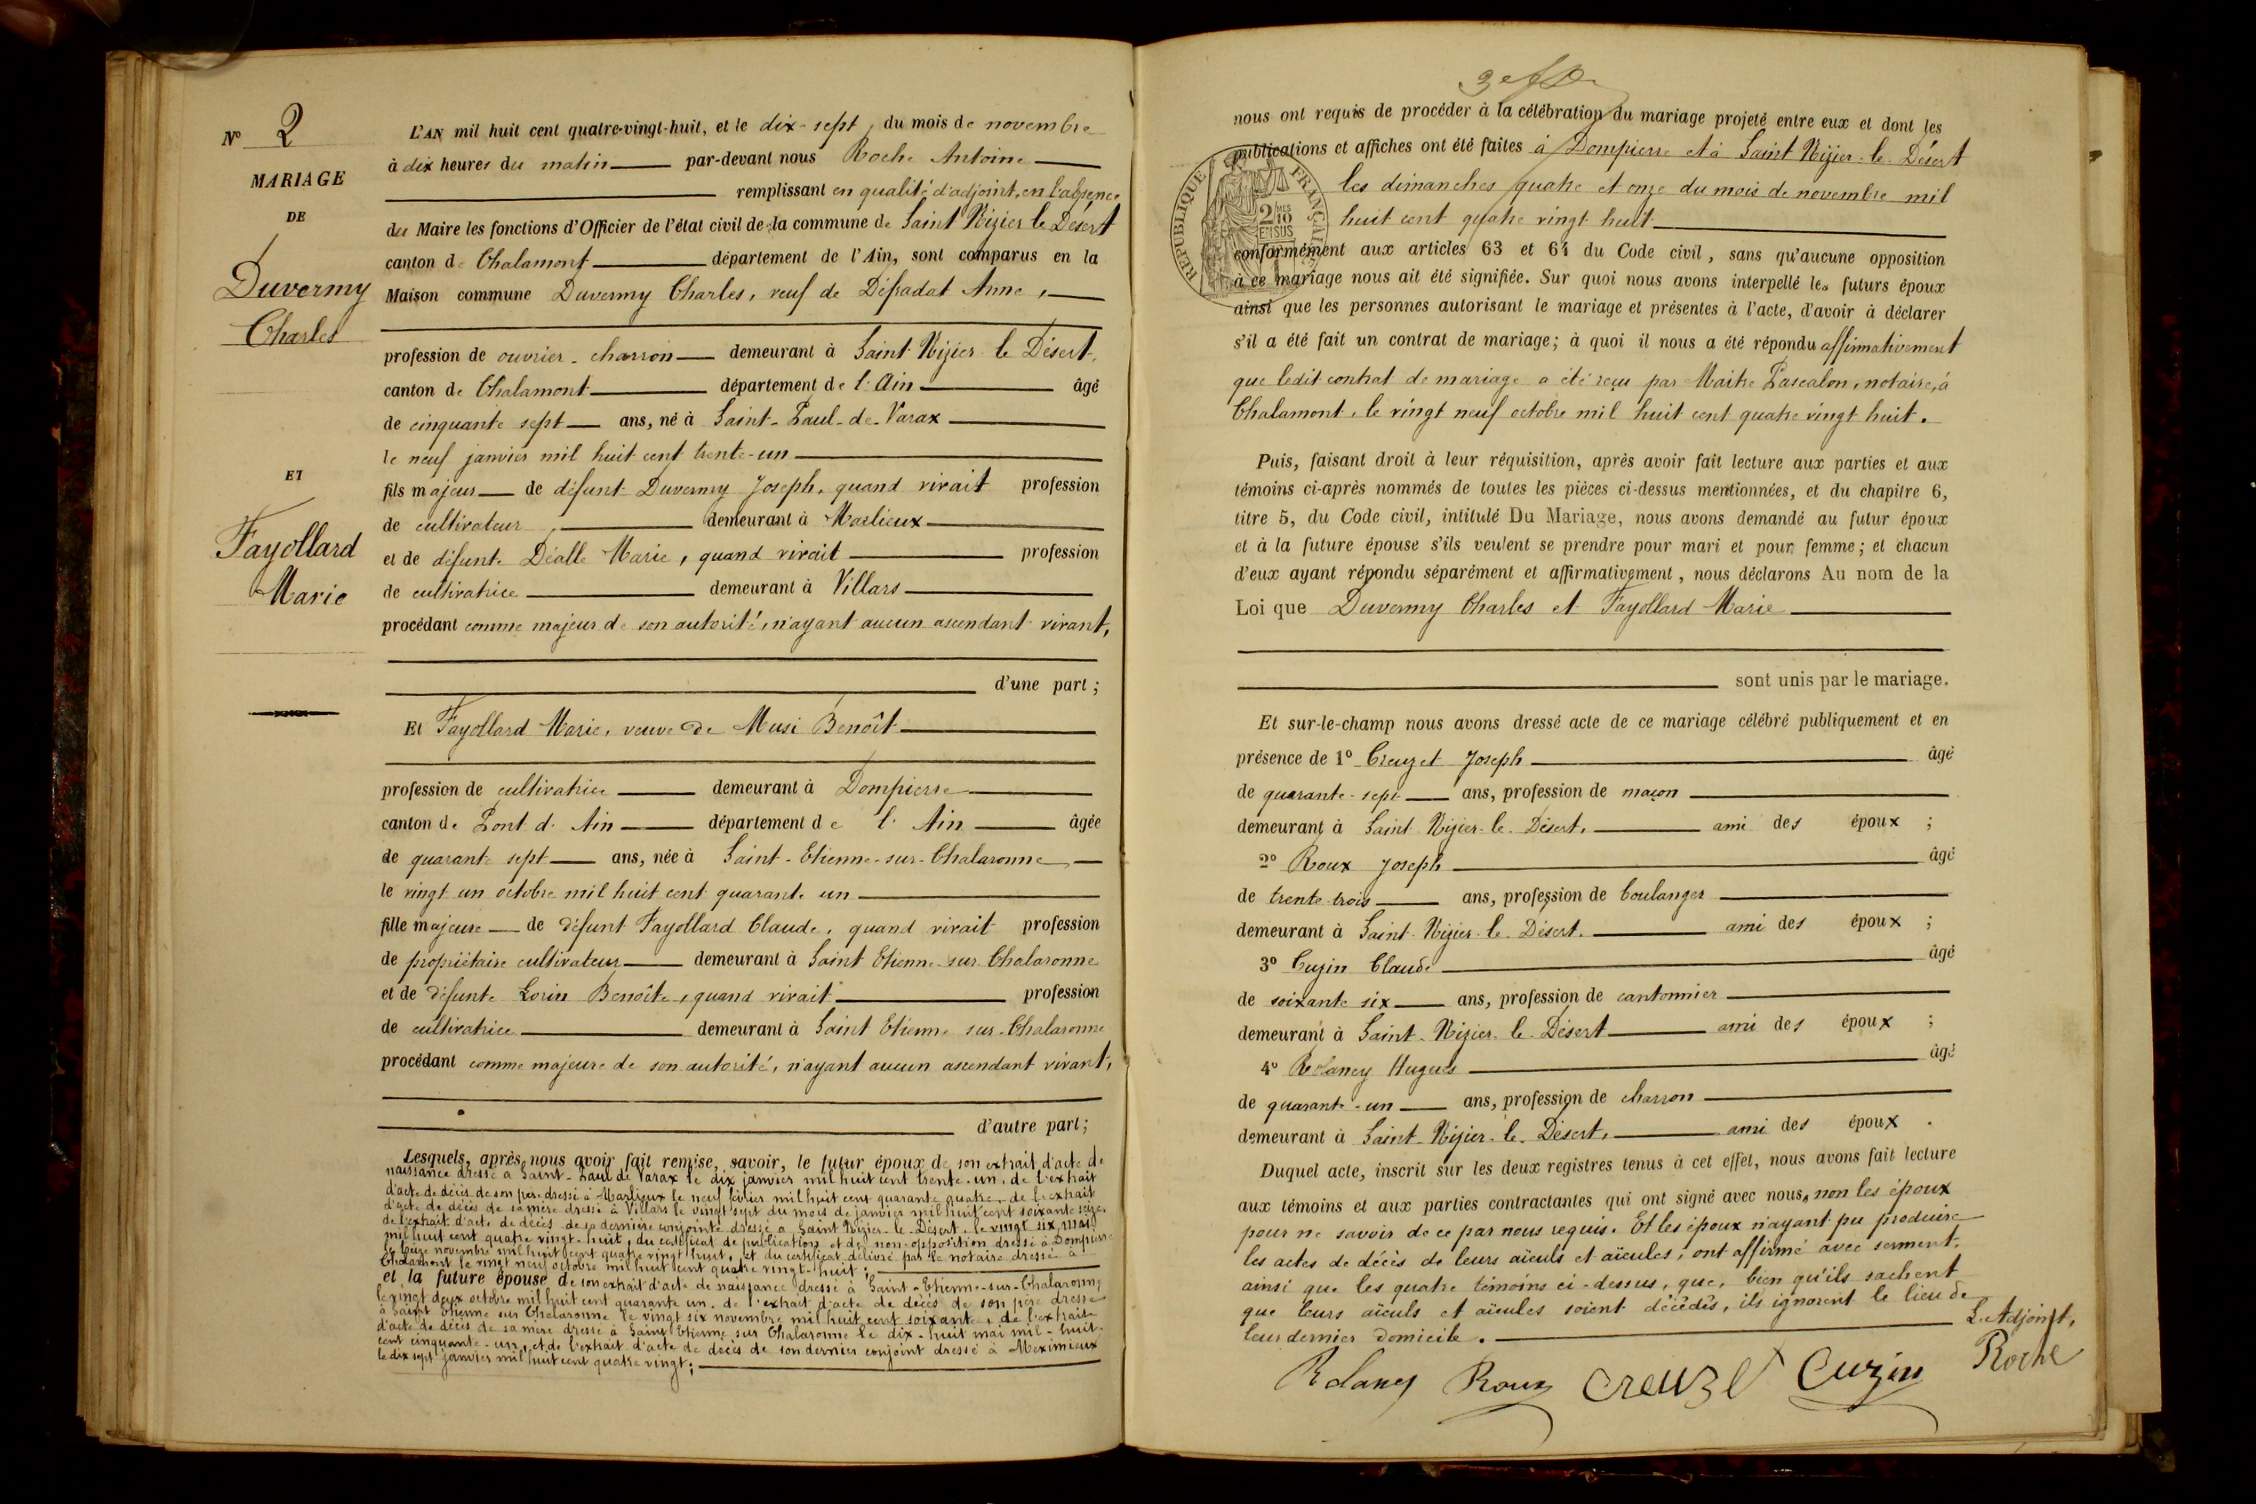 Nº 2
MARIAGE
DE
Duvermy
Charles
ET
Fayollard
Marie
L'AN mil huit cent quatre-vingt-huit, et le dix-sept, du mois de novembre
à dix heures du matin par-devant nous Roche Antoine
remplissant en qualité d'adjoint, en l'absence
du Maire les fonctions d'Officier de l'état civil de la commune de Saint Nizier le Désert
canton de Chalamont département de l'Ain, sont comparus en la
Maison commune Duvermy Charles, veuf de Défradat Anne,
profession de ouvrier-charron demeurant à Saint-Nizier le Désert,
canton de Chalamont département de l'Ain âgé
de cinquante sept ans, né à Saint-Paul-de-Varax
le neuf janvier mil huit cent trente-un
fils majeur de défunt Duvermy Joseph, quand vivait profession
de cultivateur, demeurant à Marlieux
et de défunte Déalle Marie, quand vivait profession
de cultivatrice demeurant à Villars
procédant comme majeur de son autorité, n'ayant aucun ascendant vivant,
d'une part ;
Et Fayollard Marie, veuve de Musi Benoît
profession de cultivatrice demeurant à Dompierre
canton de Pont d'Ain département de l'Ain âgée
de quarante sept ans, née à Saint-Etienne-sur-Chalaronne,
le vingt un octobre mil huit cent quarante un
fille majeure de défunt Fayollard Claude, quand vivait profession
de propriétaire cultivateur demeurant à Saint Etienne-sur Chalaronne
et de défunte Lorin Benoîte, quand vivait profession
de cultivatrice demeurant à Saint Etienne sur-Chalaronne
procédant comme majeure de son autorité, n'ayant aucun ascendant vivant,
d'autre part ;
Lesquels, après nous avoir fait remise, savoir, le futur époux de son extrait d'acte de
naissance dressé à Saint-Paul de Varax le dix janvier mil huit cent trente-un, de l'extrait
d'acte de décès de son père dressé à Marlieux le neuf février mil huit cent quarante quatre, de l'extrait
d'acte de décès de sa mère dressé à Villars le vingt sept du mois de janvier mil huit cent soixante seize,
de l'extrait d'acte de décès de sa dernière conjointe dressé à Saint Nizier-le-Désert, le vingt six mars
mil huit cent quatre vingt-huit, du certificat de publication et de non-opposition dressé à Dompierre
le novembre mil huit cent quatre vingt huit, et du certificat délivré par le notaire dressé à
Chalamont le vingt neuf octobre mil huit cent quatre vingt-huit ;
et la future épouse de son extrait d'acte de naissance dressé à Saint-Etienne-sur-Chalaronne
le vingt deux octobre mil huit cent quarante un, de l'extrait d'acte de décès de son père dressé
à Saint Etienne sur Chalaronne le vingt six novembre mil huit cent soixante, de l'extrait
d'acte de décès de sa mère dressé à Saint Etienne sur Chalaronne le dix-huit mai mil-huit-
cent cinquante-un, et de l'extrait d'acte de décès de son dernier conjoint dressé à Meximieux
le dix sept janvier mil huit cent quatre vingt ;
nous ont requis de procéder à la célébration du mariage projeté entre eux et dont les
publications et affiches ont été faites à Dompierre et à Saint Nizier-le-Désert
les dimanches quatre et onze du mois de novembre mil
huit cent quatre vingt huit
REPUBLIQUE FRANÇAISE
2/10 EN SUS
conformément aux articles 63 et 64 du Code civil, sans qu'aucune opposition
à ce mariage nous ait été signifiée. Sur quoi nous avons interpellé les futurs époux
ainsi que les personnes autorisant le mariage et présentes à l'acte, d'avoir à déclarer
s'il a été fait un contrat de mariage; à quoi il nous a été répondu affirmativement
que ledit contrat de mariage a été reçu par Maître Pascalon, notaire, à
Chalamont, le vingt neuf octobre mil huit cent quatre vingt huit.
Puis, faisant droit à leur réquisition, après avoir fait lecture aux parties et aux
témoins ci-après nommés de toutes les pièces ci-dessus mentionnées, et du chapitre 6,
titre 5, du Code civil, intitulé Du Mariage, nous avons demandé au futur époux
et à la future épouse s'ils veulent se prendre pour mari et pour femme ; et chacun
d'eux ayant répondu séparément et affirmativement, nous déclarons Au nom de la
Loi que Duvermy Charles et Fayollard Marie
sont unis par le mariage.
Et sur-le-champ nous avons dressé acte de ce mariage célébré publiquement et en
présence de 1º Creuzet Joseph âgé
de quarante-sept ans, profession de maçon
demeurant à Saint Nizier-le-Désert, ami des époux ;
2º Roux Joseph âgé
de trente-trois ans, profession de boulanger
demeurant à Saint-Nizier-le-Désert, ami des époux ;
3º Cuzin Claude âgé
de soixante six ans, profession de cantonnier
demeurant à Saint-Nizier-le-Désert ami des époux ;
4º Rolancy Hugues âgé
de quarante-un ans, profession de charron
demeurant à Saint-Nizier-le-Désert, ami des époux.
Duquel acte, inscrit sur les deux registres tenus à cet effet, nous avons fait lecture
aux témoins et aux parties contractantes qui ont signé avec nous, non les époux
pour ne savoir de ce par nous requis. Et les époux n'ayant pu produire
les actes de décès de leurs aïeuls et aïeules, ont affirmé avec serment,
ainsi que les quatre témoins ci-dessus, que, bien qu'ils sachent
que leurs aïeuls et aïeules soient décédés, ils ignorent le lieu de
leur dernier domicile.
L'Adjoint,
Rolancy Roux Creuzet Cuzin Roche